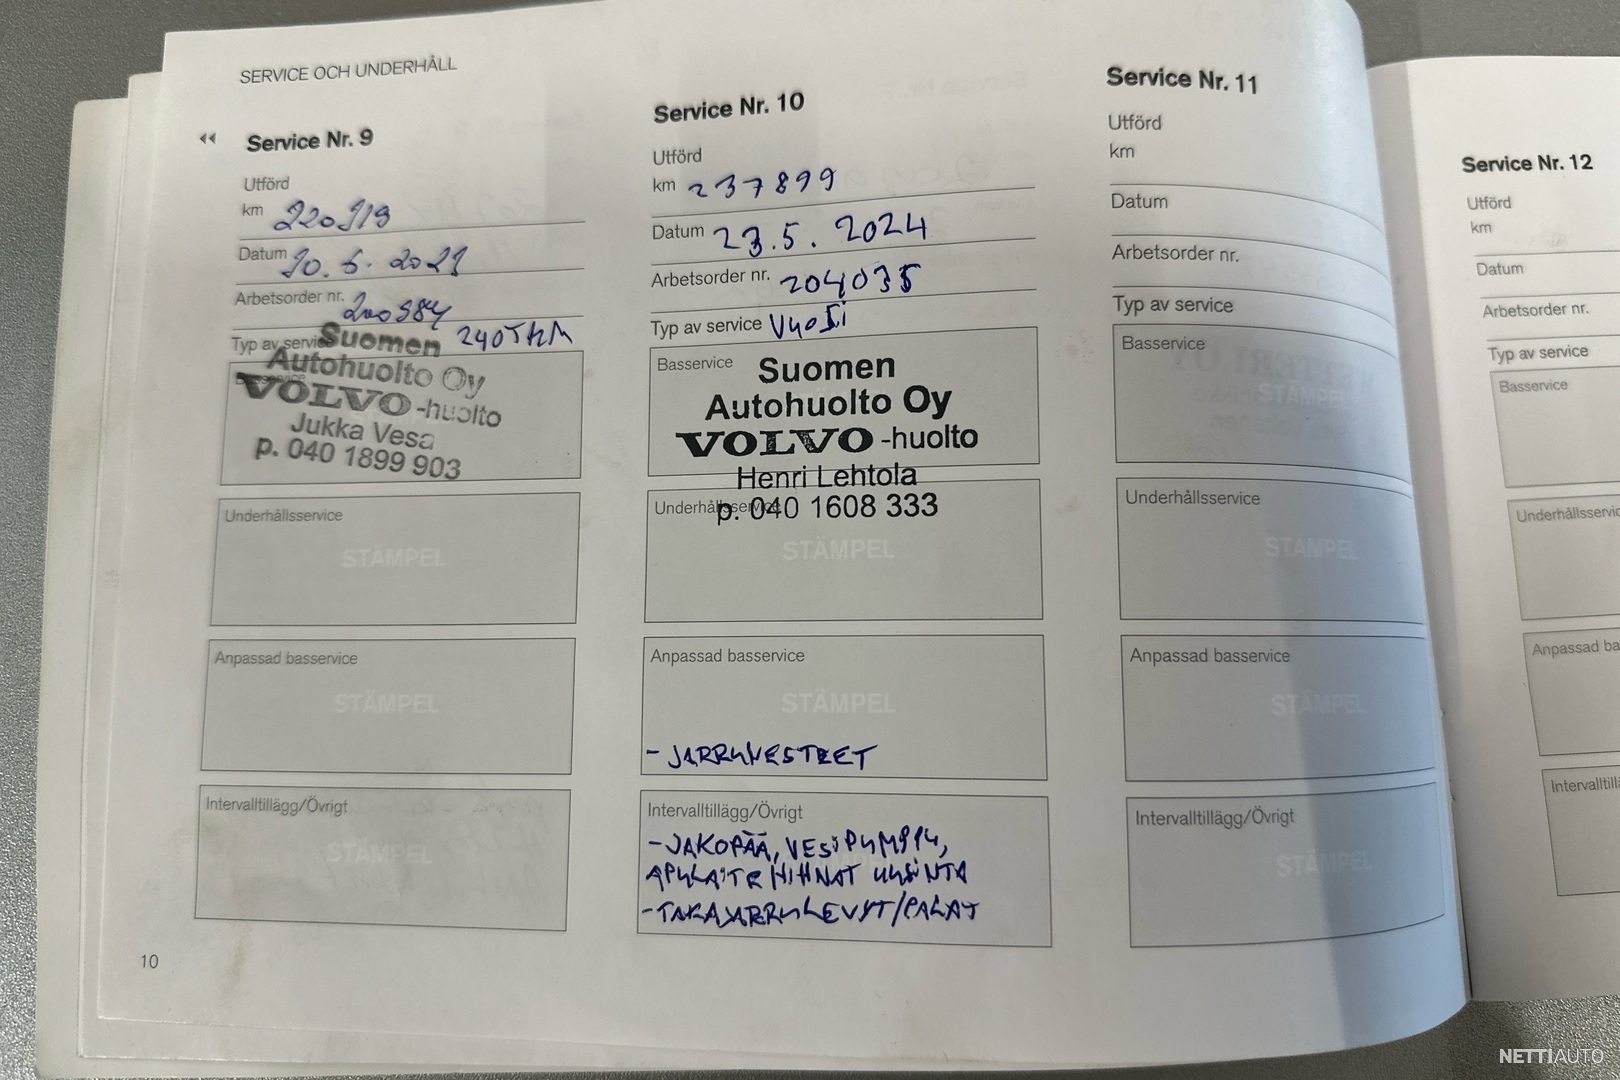 SERVICE OCH UNDERHÅLL
Service Nr. 9
Utförd
km 220919
Datum 10.6.2021
Arbetsorder nr. 200984
Typ av service 240TKM
Suomen
Autohuolto Oy
VOLVO-huolto
Jukka Vesa
p. 040 1899 903
Underhållsservice
STÄMPEL
Anpassad basservice
STÄMPEL
Intervalltillägg/Övrigt
STÄMPEL
10
Service Nr. 10
Utförd
km 237899
Datum 23.5.2024
Arbetsorder nr. 204035
Typ av service VUOSI
Basservice
Suomen
Autohuolto Oy
VOLVO-huolto
Henri Lehtola
p. 040 1608 333
Underhållsservice
STÄMPEL
Anpassad basservice
STÄMPEL
- JARRUNESTEET
Intervalltillägg/Övrigt
- JAKOPÄÄ, VESIPUMPPU,
APULAITEHIHNAT UUSINTA
- TAKAJARRULEVYT/PALAT
Service Nr. 11
Utförd
km
Datum
Arbetsorder nr.
Typ av service
Basservice
STÄMPEL
Underhållsservice
STÄMPEL
Anpassad basservice
STÄMPEL
Intervalltillägg/Övrigt
STÄMPEL
Service Nr. 12
Utförd
km
Datum
Arbetsorder nr.
Typ av service
Basservice
Underhållsservic
Anpassad ba
Intervalltill
NETTIAUTO